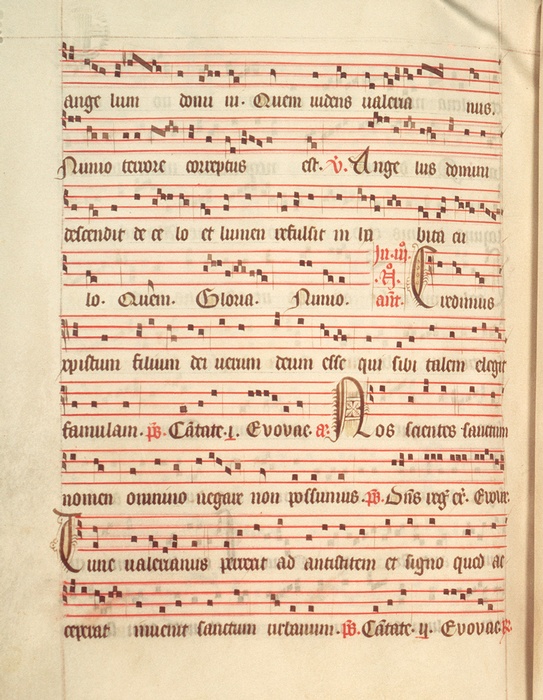 ange lum domi ni. Quem uidens ualeria nus.
Nimio terrore correptus est. v. Ange lus domini
descendit de ce lo et lumen refulsit in ha bita cu
lo. Quem. Gloria. Nimio. In .iii. .ꝶ. ant. Credimus
xpistum filium dei uerum deum esse qui sibi talem elegit
famulam. ps. Cātate .i. Evovae. a. Nos scientes sanctum
nomen omnino negare non possumus. ps. Dn̄s reg
Tunc ualerianus perrexit ad antistitem et signo quod ac
ceperat inuenit sanctum urbanum. ps. Cātate .ii. Evovae.